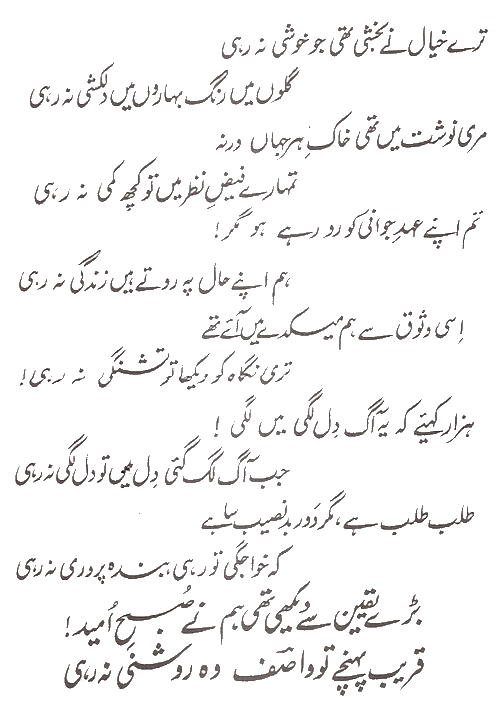 ترے خیال نے بخشی تھی جو خوشی نہ رہی
گلوں میں رنگ بہاروں میں دلکشی نہ رہی
مری نوشت میں تھی خاکِ ہر جہاں ورنہ
تمہارے فیضِ نظر میں تو کچھ کمی نہ رہی
تم اپنے عہدِ جوانی کو رو رہے ہو مگر!
ہم اپنے حال پہ روتے ہیں زندگی نہ رہی
اِسی وثوق سے ہم میکدے میں آئے تھے
تری نگاہ کو دیکھا تو تشنگی نہ رہی!
ہزار کہئیے کہ یہ آگ دِل لگی میں لگی!
جب آگ لگ گئی دِل میں تو دل لگی نہ رہی
طلب طلب ہے، مگر دَور بدنصیب سا ہے
کہ خواجگی تو رہی، بندہ پروری نہ رہی
بڑے یقین سے دیکھی تھی ہم نے صُبحِ اُمید!
قریب پہنچے تو واصفؔ وہ روشنی نہ رہی